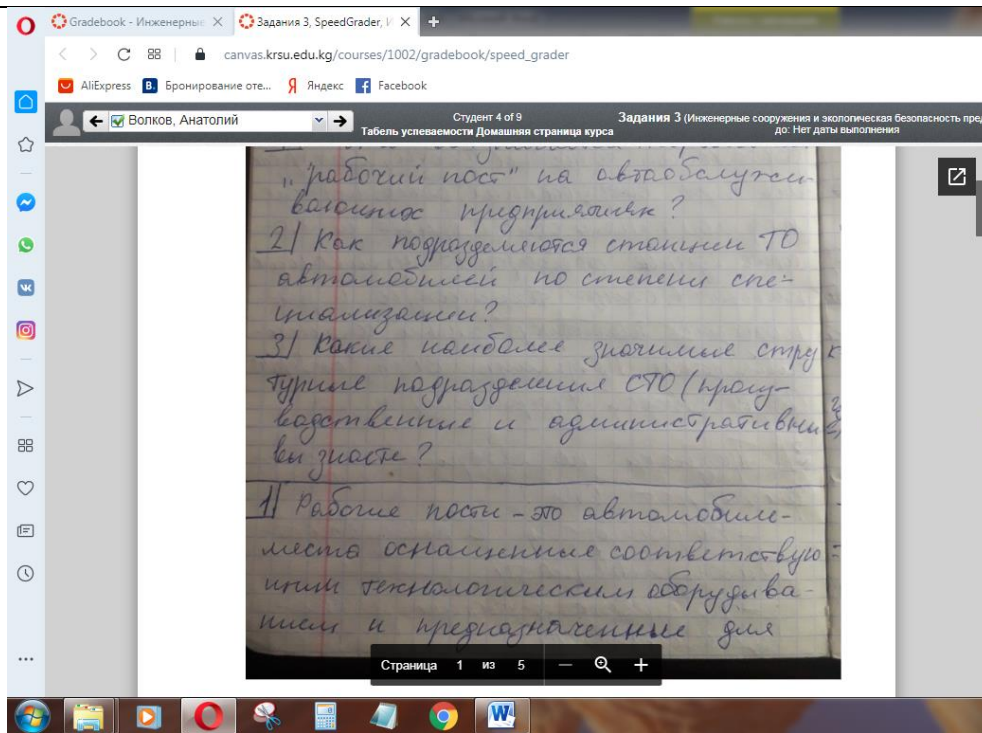 Gradebook - Инженерны
Задания 3, SpeedGrader, И
canvas.krsu.edu.kg/courses/1002/gradebook/speed_grader
AliExpress
B. Бронирование оте...
Я Яндекс
Facebook
Волков, Анатолий
Студент 4 of 9
Табель успеваемости Домашняя страница курса
Задания 3 (Инженерные сооружения и экологическая безопасность пред
до: Нет даты выполнения
„рабочий пост" на автообслужи
вающих предприятиях?
2) Как подразделяются станции ТО
автомобилей по степени спе-
циализации?
3) Какие наиболее значимые струк
турные подразделения СТО (произ-
водственные и административные
вы знаете?
1) Рабочие посты - это автомобиле-
места оснащенные соответствую-
щим технологическим оборудыва-
нием и предназначенные для
Страница 1 из 5